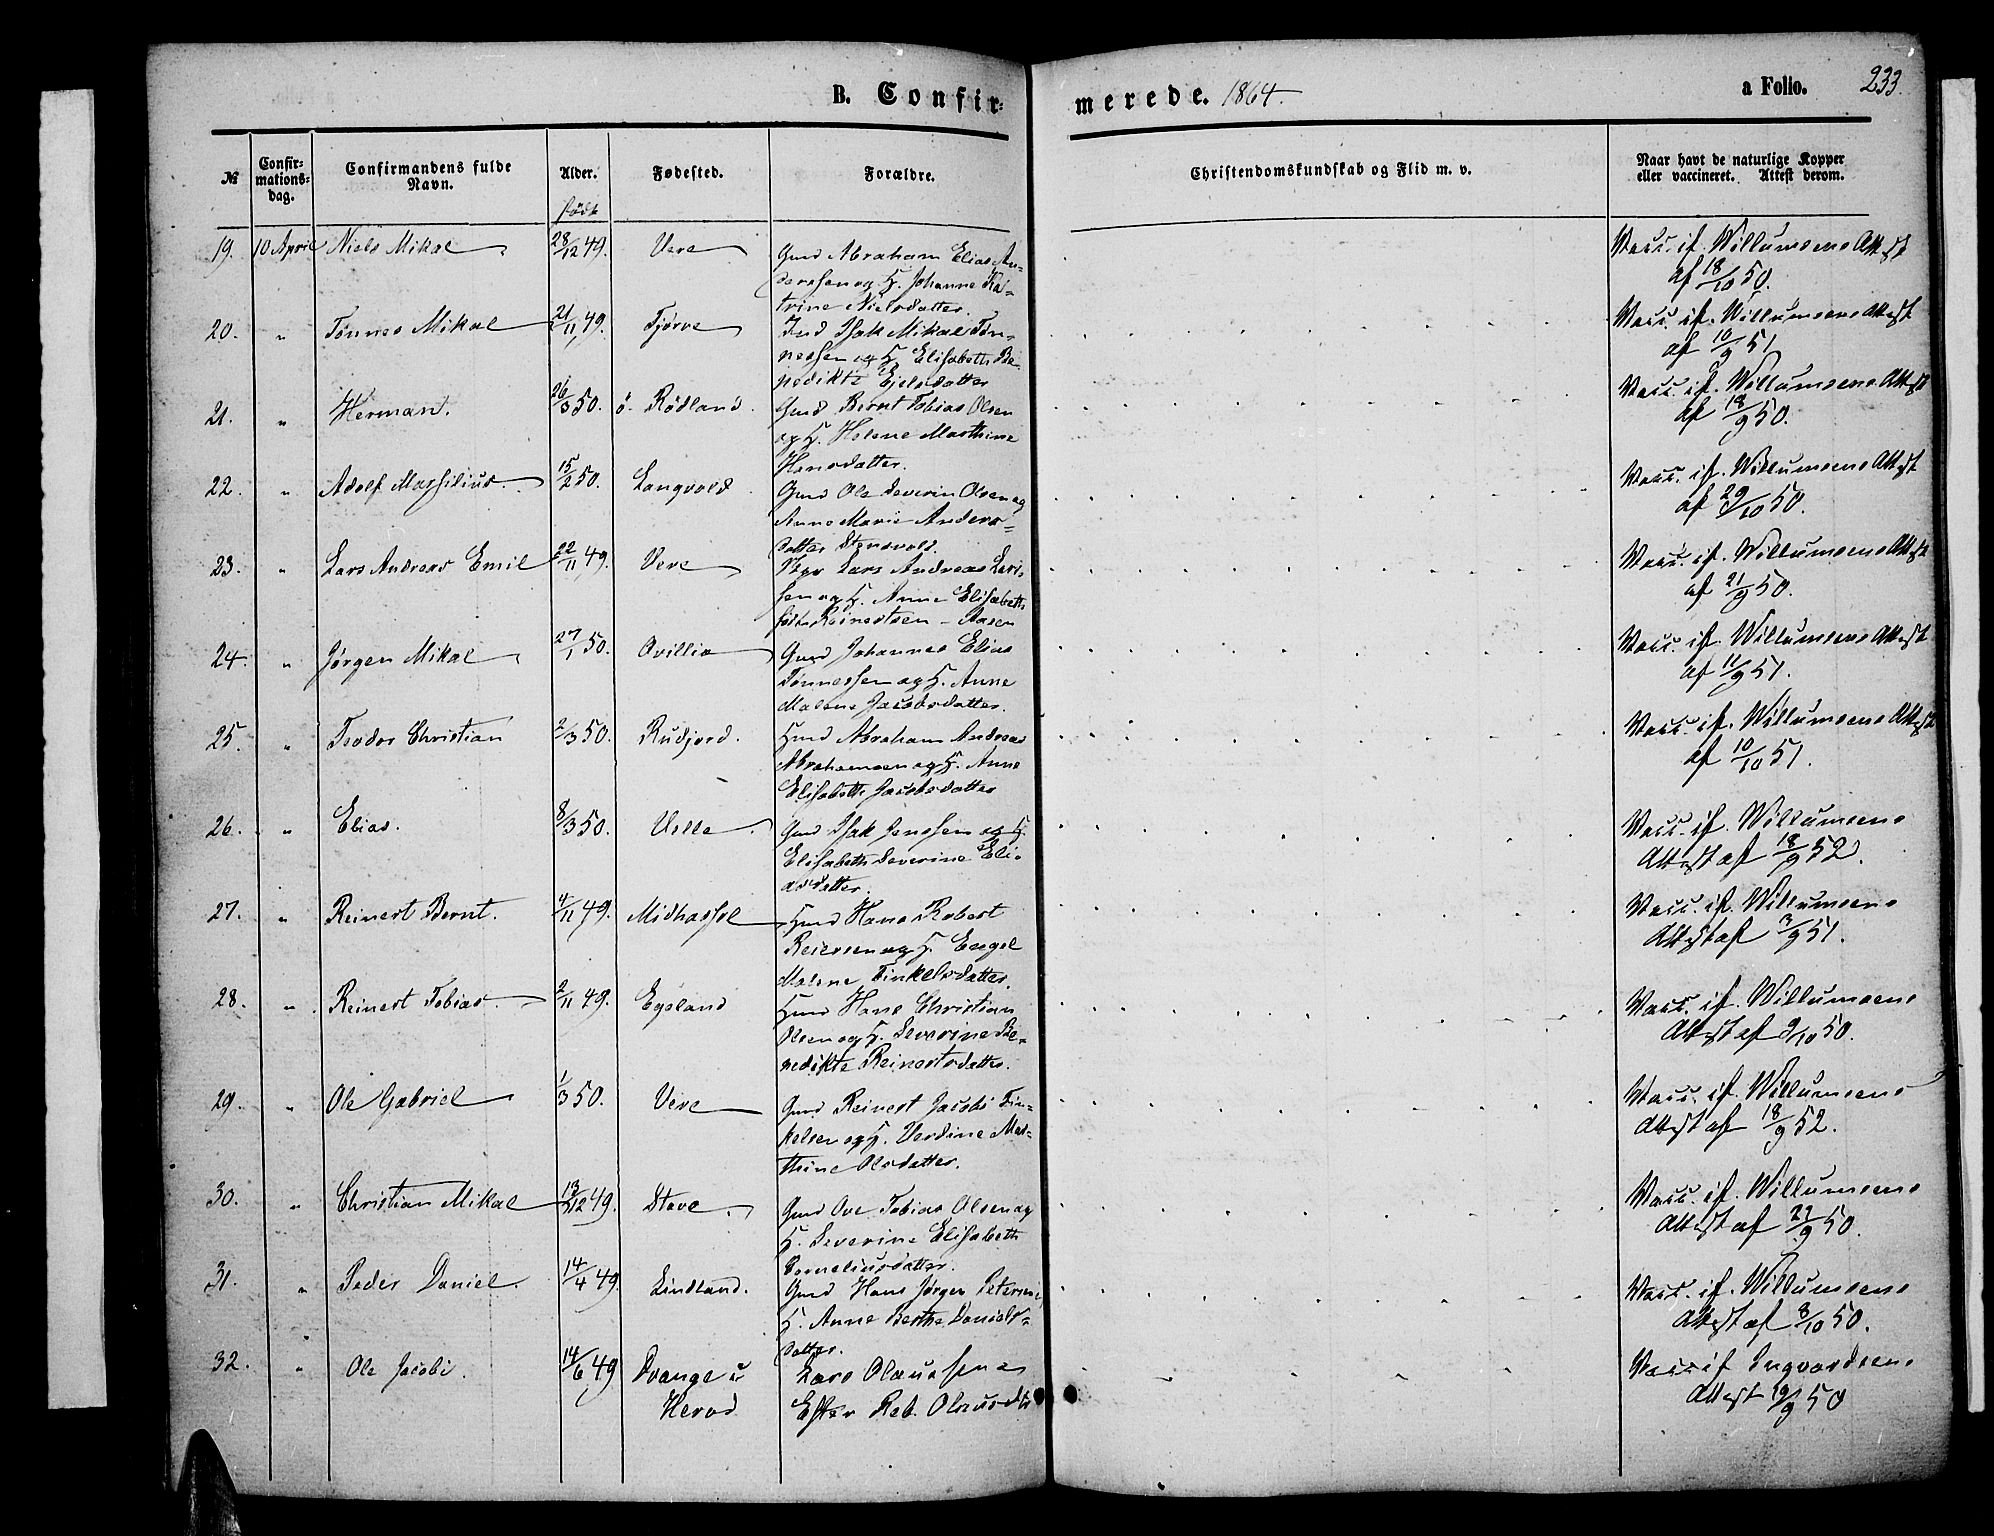 B. Confir-
merede. 1864.
a Folio. 233.
№
Confir-
mations-
dag.
Confirmandens fulde
Navn.
Alder.
Fødested.
Forældre.
Christendomskundskab og Flid m. v.
Naar havt de naturlige Kopper
eller vaccineret. Attest derom.
født
19. 10 April Niels Mikal 28/12 49. Vere Gmd Abraham Elias An-
dersen og H. Johanne Ka-
trine Nielsdatter.
Vacc. if. Willumsens Attest
af 18/10 50.
20. " Tønnes Mikal 21/11 49. Tjørve Isak Mikal Tøn-
nessen og H. Elisabeth Be-
nedikte Ejelsdatter
Vacc. if. Willumsens Attest
af 10/9 51.
21. " Herman. 26/3 50. ö. Rödland. Gmd Bernt Tobias Olsen
og H. Helene Marthine
Hansdatter.
Vacc. if. Willumsens Attest
af 18/9 50.
22. " Adolf Marsilius. 15/2 50. Langvold Gmd Ole Severin Olsen og
Anne Marie Anders-
datter Stensvold.
Vacc. if. Willumsens Attest
af 29/10 50.
23. " Lars Andreas Emil 22/11 49. Vere Lars Andreas Lari-
sen og H. Anne Elisabeth
født Reinertsen - Aasen
Vacc. if. Willumsens Attest
af 21/9 50.
24. " Jørgen Mikal 27/1 50. Ovillia Gmd Johannes Elias
Tønnessen og H. Anne
Malene Jacobsdatter.
Vacc. if. Willumsens Attest
af 11/9 51.
25. " Teodor Christian 2/3 50. Rudjord. Hmd Abraham Andreas
Abrahamsen og H. Anne
Elisabeth Jacobsdatter
Vacc. if. Willumsens Attest
af 10/10 51.
26. " Elias. 8/3 50. Ulle. Gmd Isak Jenssen og H.
Elisabeth Severine Eli-
asdatter.
Vacc. if. Willumsens
Attest af 18/9 52.
27. " Reinert Bernt. 4/11 49. Midhassel Hmd Hans Robert
Reiersen og H. Engel
Malene Tinkelsdatter.
Vacc. if. Willumsens
Attest af 3/9 51.
28. " Reinert Tobias. 2/11 49. Egeland Hmd Hans Christian
Olsen og H. Severine Be-
nedikte Reinertsdatter.
Vacc. if. Willumsens
Attest af 9/10 50.
29. " Ole Gabriel 1/3 50. Vere Gmd Reinert Jacobi Tin-
kelsen og H. Verdine Mar-
thine Olsdatter.
Vacc. if. Willumsens
Attest af 18/9 52.
30. " Christian Mikal 13/12 49. Stave. Gmd Ove Tobias Olsen og
H. Severine Elisabeth
Corneliusdatter.
Vacc. if. Willumsens
Attest af 21/9 50.
31. " Peder Daniel. 14/4 49. Lindland. Gmd Hans Jørgen Petersen
H. Anne Berthe Daniels-
datter.
Vacc. if. Willumsens
Attest af 8/10 50.
32. " Ole Jacobi. 14/6 49 Drange i
Herad
Lars Olaussen a
Ester Reb. Olausdtr
Vacc if Ingvardsens
Attest 19/9 50